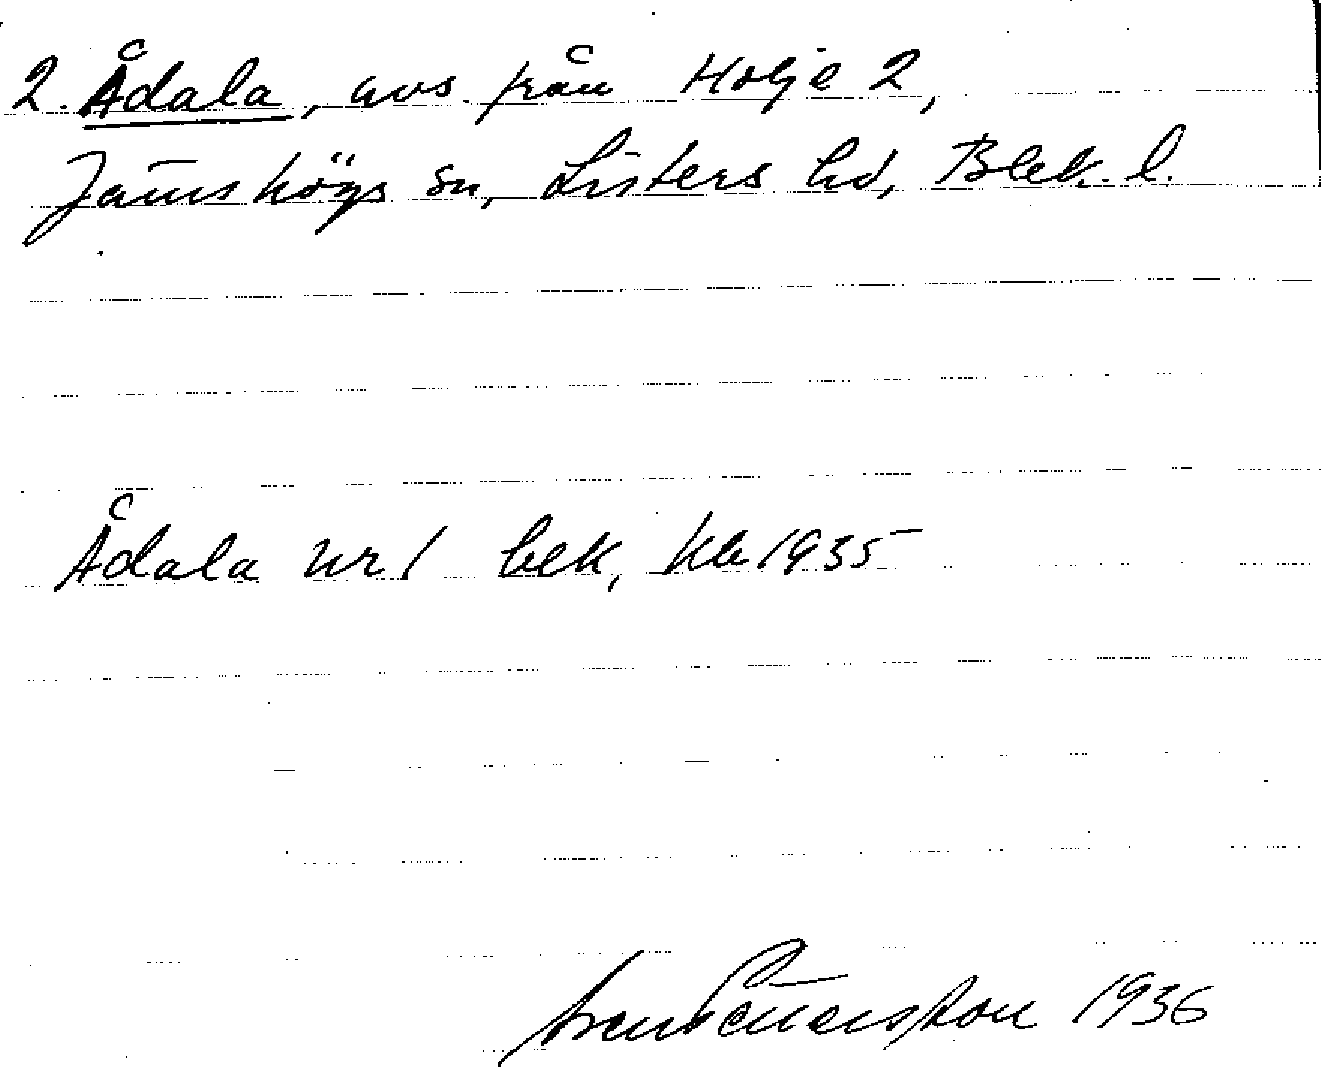 2. Ådala, avs från Holje 2,
Jämshögs sn, Listers hd, Blek. l.
Ådala nr 1 bek, Kb 1935
1936